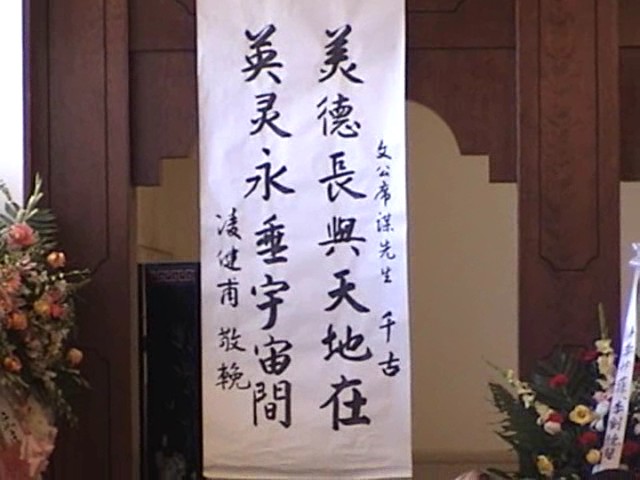 文公席謀先生 千古
美德長與天地在
英灵永垂宇宙間
凌健甫 敬輓